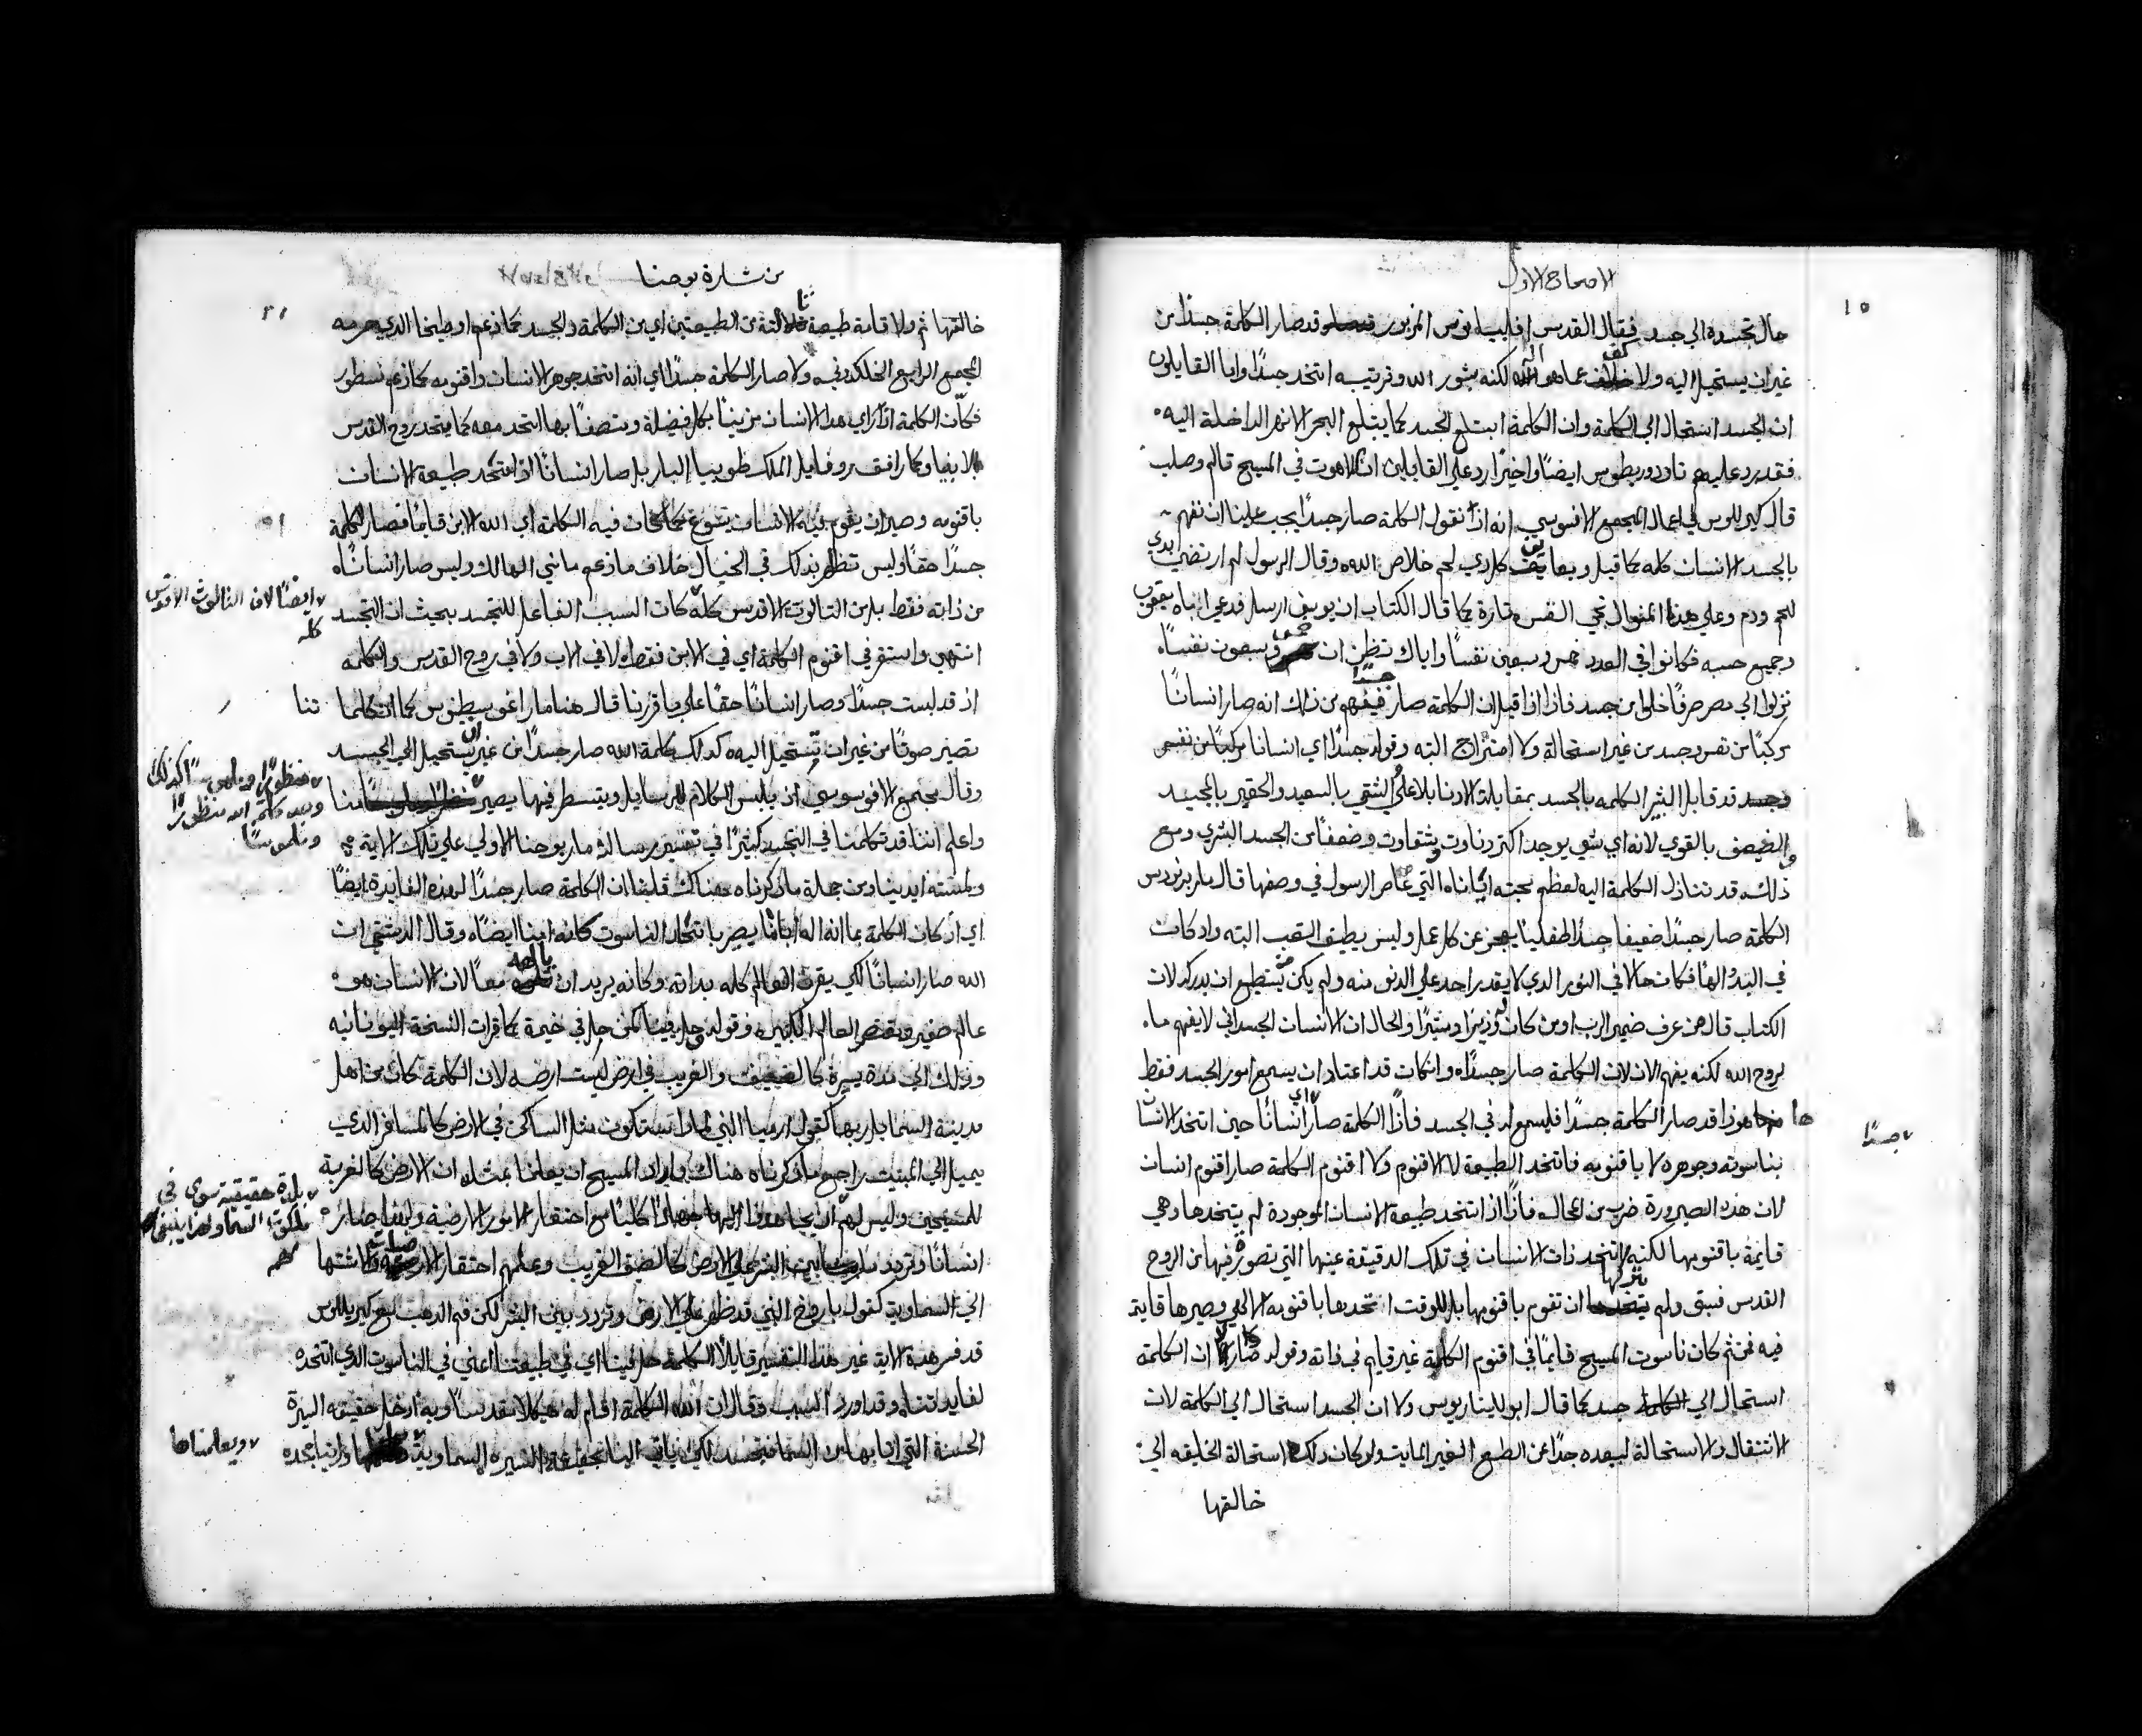 الاصحاح الاول
١٥
حال تجسده الي جسد فقال القديس ابيفانيوس المزبور قد صار الكلمة جسدًا من
غير ان يستحيل اليه ولا كف عما هو اله لكنه بشور الله وترتيبه اتخد جسدًا واما القايلون
ان الجسد استحال الي الكلمة وان الكلمة ابتلع الجسد كما يبتلع البحر الانهر الداخلة اليه
فقد يرد عليهم تاودوريطوس ايضًا واخيرًا رد علي القايلين ان اللاهوت في المسيح تالم وصلب
قال كيرللوس في اعمال المجمع الافسوسي انه اذا نقول الكلمة صار جسدًا يجب علينا ان نفهم
بالجسد الانسان كله كما قيل ويعاين كل دي لحم خلاص الله وقال الرسول لم ارتضي
للحم ودم وعلي هدا المنوال تجي النفس تارة كما قال الكتاب ان يوسف ارسل فدعي اباه يعقوب
وجميع حسبه فكانوا في العدد خمس وسبعين نفسًا واياك تظن ان خمس وسبعون نفسًا
نزلوا الي مصر صرفًا خلوا من جسد فاذا اذا قيل ان الكلمة صار جسدًا فيفهم من ذلك انه صار انسانًا
مركبًا من نفس وجسد من غير استحالة ولا امتزاج البته وقوله جسدًا اي انسانا مركبًا من نفس
وجسد قد قابل البشير الكلمه بالجسد بمقابلة الادنا بالاعلي الشقي بالسعيد والحقير بالمجيد
والضعيف بالقوي لانه اي شي يوجد اكتر دناوت وشقاوت وضعفًا من الجسد البشري ومع
ذلك قد تنازل الكلمة اليه لعظم محبته ايانا التي غاص الرسول في وصفها قال مار برنردس
الكلمة صار جسدًا ضعيفا جسدًا طفليًا يعجز عن كل عمل وليس يطيق التعب البته واد كان
في البدو الهًا فكان حالا في النور الدي لا يقدر احد علي الدنو منه ولم يكن من يستطيع ان يدركه لان
الكتاب قال من عرف ضمير الرب او من كان له وزيرًا ومشيرًا والحال ان الانسان الجسداني لا يفهم ما
لروح الله لكنه يفهم الان لان الكلمة صار جسدًا وان كان قد اعتاد ان يسمع امور الجسد فقط
ها هوذا قد صار الكلمة جسدًا فليسمع له في الجسد فاذًا الكلمة صار جسدًا اي انسانًا حين اتخد الانسان
بناسوته وجوهره لا باقنومه فاتخد الطبيعة لا الاقنوم ولا اقنوم الكلمة صار اقنوم انسان
لان هده الصيرورة ضرب من المحال فاذًا اذ اتخد طبيعة الانسان الموجودة لم يتخدها وهي
قايمة باقنومها لكنه اتخد ذات الانسان في تلك الدقيقة عينها التي تصور فيها من الروح
القدس فسبق ولم يتركها ان تقوم باقنومها بل للوقت اتخدها باقنومه الالهي وصيرها قايمة
فيه فمن ثم كان ناسوت المسيح قايمًا في اقنوم الكلمة غير قيام في ذاته وقوله صار لا ان الكلمة
استحال الي جسد كما قال ابولليناريوس ولا ان الجسد استحال الي الكلمة لان
الانتقال والاستحالة لبعده جدًا عن الطبع الغير المايت ولو كان ذلك استحالة الخليقه الي
خالقها
جسدًا
من بشارة يوحنا
خالقها ثم ولا قامة طبيعة ثالثة من الطبيعتين اي من الكلمة والجسد كما زعم اوطيخا الدي حرمه
المجمع الرابع الخلكدوني ولا صار الكلمة جسدًا اي انه اتخد جوهر الانسان واقنومه كما زعم نسطور
فكأن الكلمة اذ راي هدا الانسان مزينًا بكل فضيلة ومتصفًا بها اتحد معه كما يتحد روح القدس
بالانبيا وكما رافق روفايل الملك طوبيا البار بل صار انسانًا اذ اتخد طبيعة الانسان
باقنومه وصير ان يقوم فيه الانسان بنوع كما كان فيه الكلمة اي الله الابن قايمًا فصار الكلمة
جسدًا حقًا وليس تظاهر بذلك في الخيال خلاف ما زعم ماني الهالك وليس صار انسانًا
من ذاته فقط بل من التالوت الاقدس كله كان السبب الفاعل للتجسد بحيث ان التجسد
ايضًا لان الثالوث الاقدس
كله
انتهي واستقر في اقنوم الكلمة اي في الابن فقط لا في الاب ولا في روح القدس والكلمه
اذ قد لبست جسدًا وصار انسانًا حقًا علي ما قررنا قال هنا مار اغوسطينوس كما ان كلماتنا
تصير صوتًا من غير ان تستحيل اليه كدلك كلمة الله صار جسدًا من غير ان يستحيل الي الجسد
وقال مجمع الافسوسي ان يلبس الكلام الرسايل وبتسطر فيها يصير
منظورًا وملموسًا كدلك
وبعد كلمه الله منظورًا
وملموسًا
واعلم اننا قد تكلمنا في التجسد كثيرًا في تفسير رسالة مار يوحنا الاولي علي تلك الاية
ولمسته ايدينا ومن جملة ما ذكرناه هناك قلنا ان الكلمة صار جسدًا لهده الفايدة ايضًا
اي اذ كان الكلمة بما انه اله ابانا يصير باتخاد الناسوت كانه امنا ايضًا وقال الدمشقي ان
الله صار انسانًا لكي يقرن العالم كله بداته وكانه يريد ان يالهه معًا لان الانسان هو
عالم صغير ومختصر العالم الكبير وقوله وحل فينا كمن حل في خيمة كما قرات النسخة اليونانيه
وذلك الي مدة يسيرة كالضيف والغريب في ارض ليست ارضه لان الكلمة كان من اهل
مدينة السما بل ربها كقول ارميا النبي لماذا تستكون مثل الساكن في الارض كالمسافر الدي
يميل الي المبيت راجع ما ذكرناه هناك واراد المسيح ان يعلمنا بمثله ان الارض كالغربة
للمسيحيين وليس لهم
بلدة حقيقية سوي في
ملكوت السما
احتقار الامور الارضية ولهدا صار
انسانًا وتردد بين البشر علي الارض كالضيف الغريب وعلمهم احتقار الارضيات
الي السماوية كقول باروخ النبي قد ظهر علي الارض وتردد بين البشر لكن فم الدهب مع كيرللوس
قد فسر هذه الاية غير هدا التفسير قايلًا الكلمة حل فينا اي في طبيعتنا اعني في الناسوت الدي اتخده
لفايدتنا وقد اورد السبب وقال ان الله الكلمة اقام له هيكلا مقدسًا وبه ادخل حقيقه السيرة
الحسنة التي اتا بها من السما
ويعلمناها